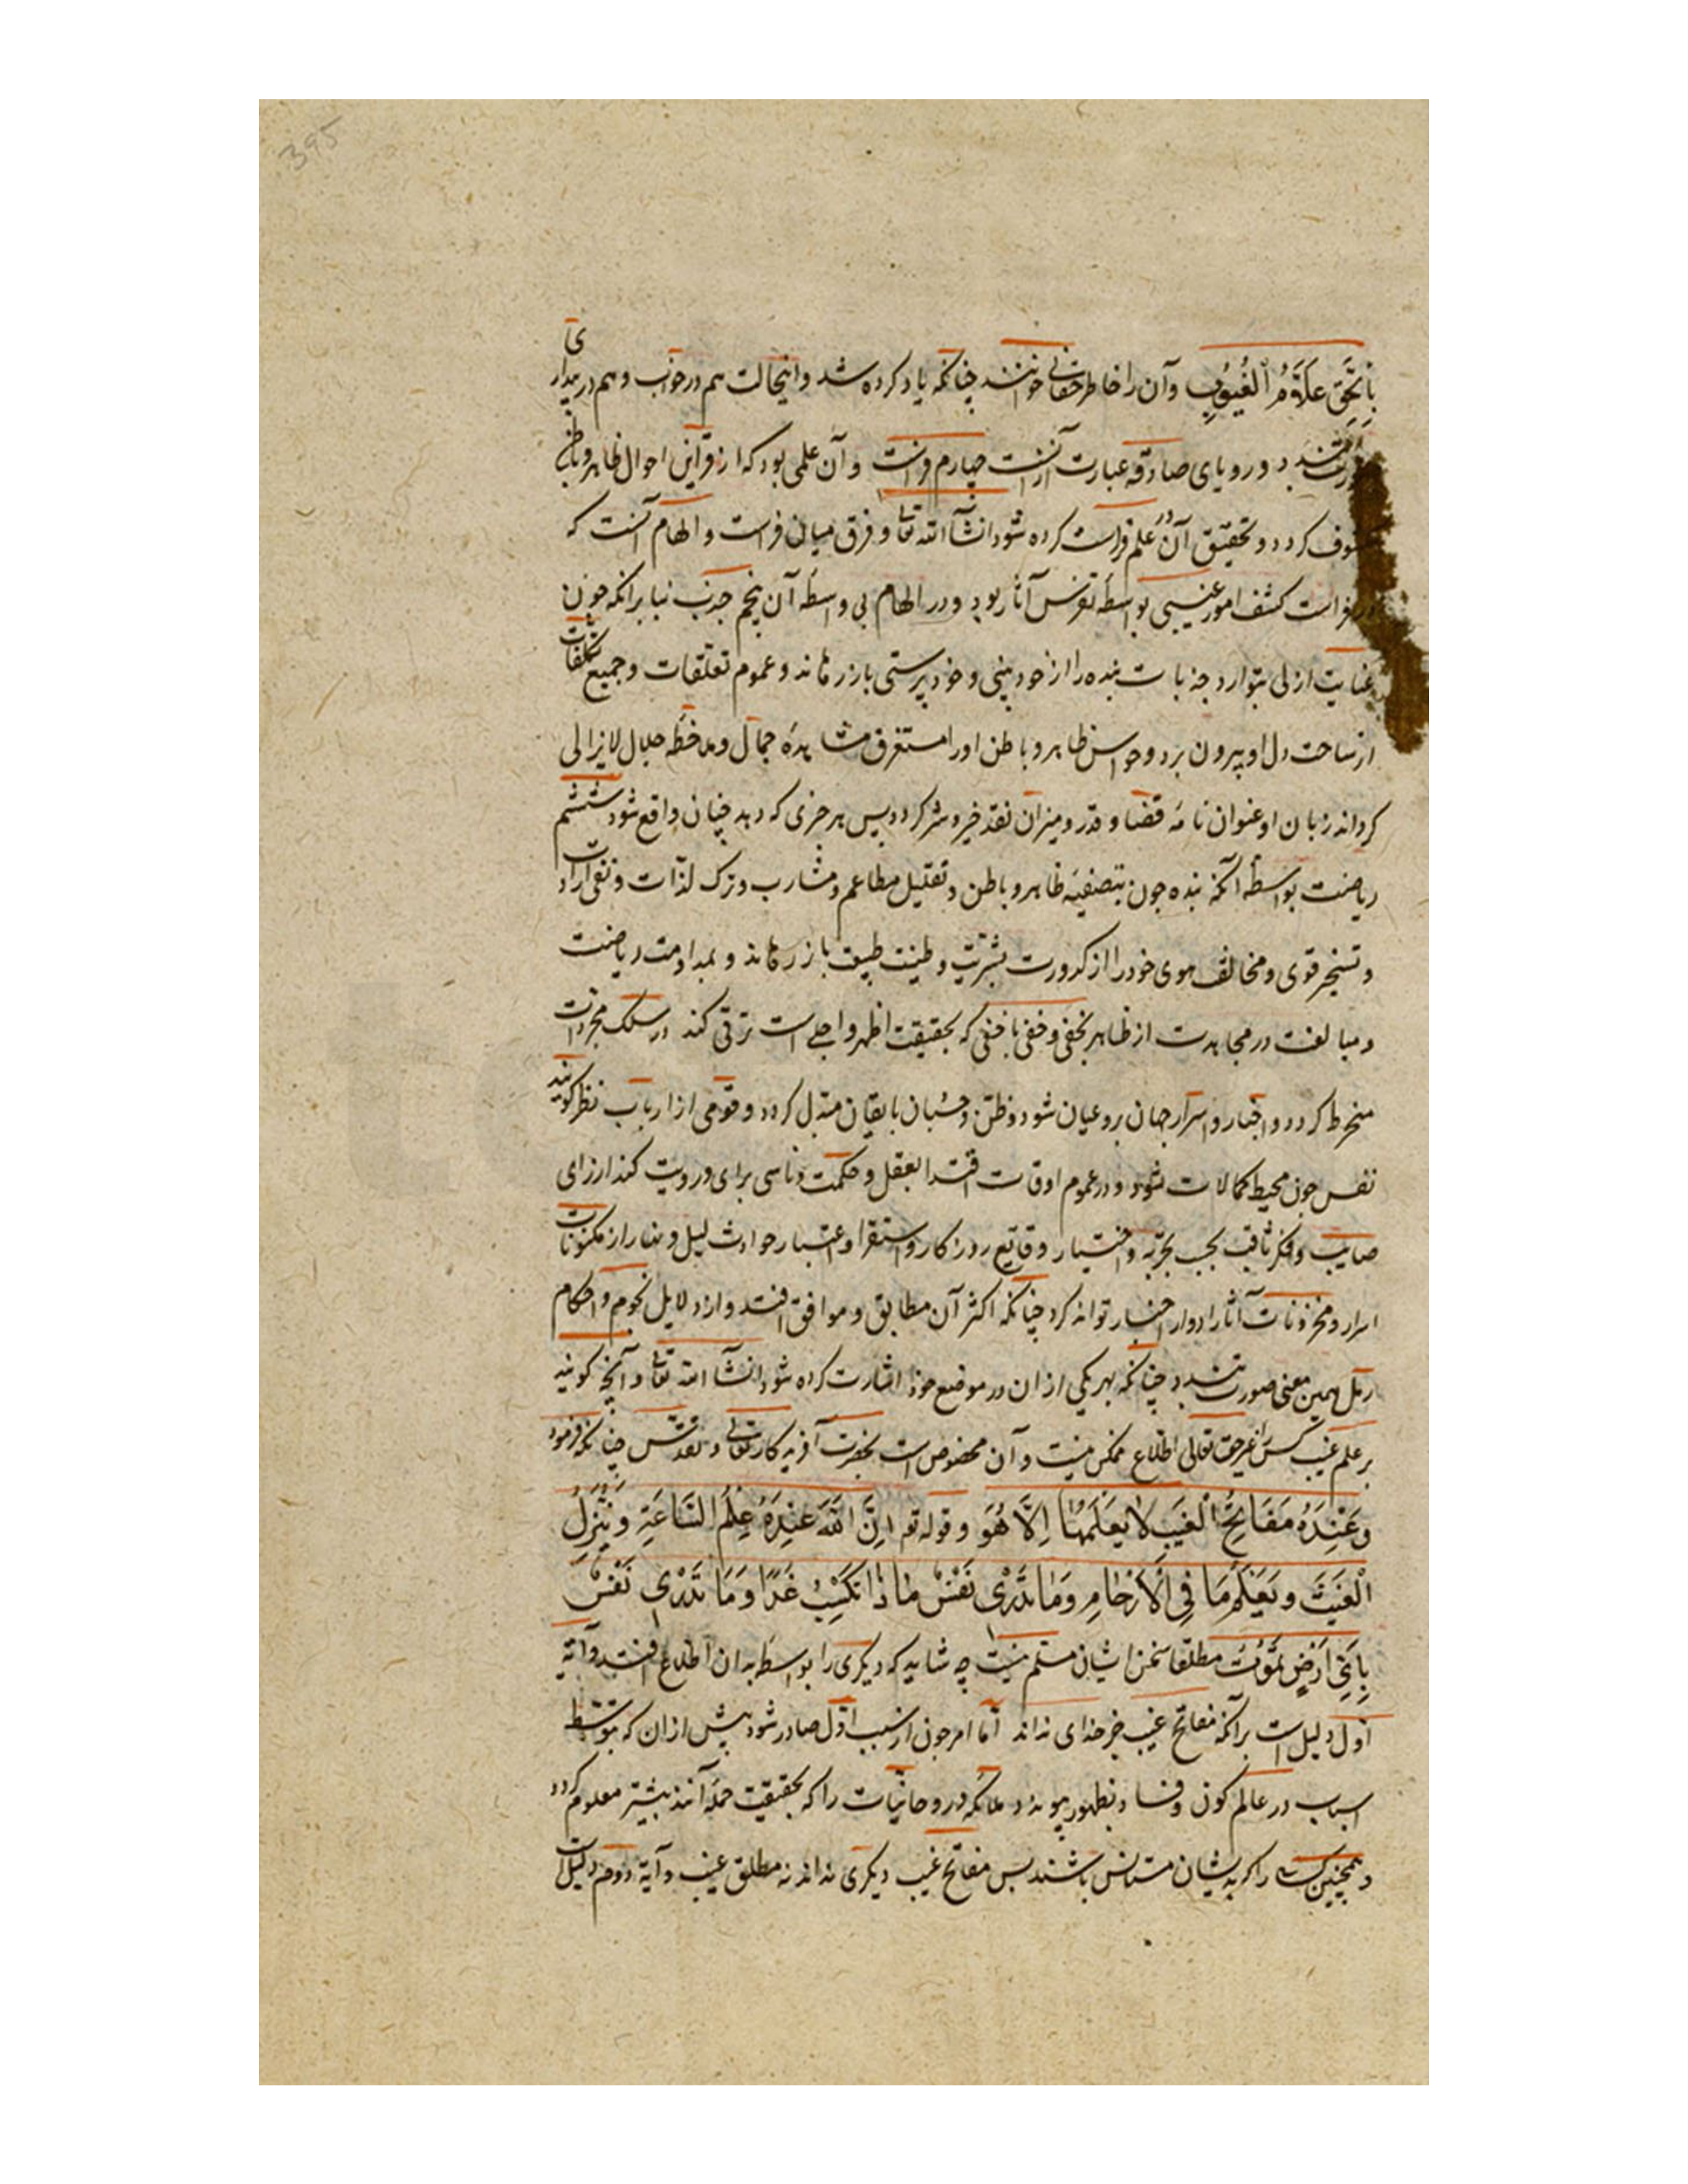 395
بالحق علام الغیوب وآن را خاطر حقانی خوانند چنانکه یاد کرده شد و اینحالت هم در خواب و هم در بیداری
صورت بندد و رویای صادقه عبارت ازآنست چهارم فراست وآن علمی بود که از قراین احوال ظاهر و باطن
کردد و تحقیق آن در علم فراست کرده شود انشآ الله تعالی و فرق میان فراست و الهام آنست که
در فراست کشف امور غیبی بواسطه تفرس آثار بود و در الهام بی واسطه آن پنجم جذب بنا برانکه چون
عنایت ازلی بتوارد جذبات بنده را از خودبینی و خودپرستی بازرهاند و عموم تعلقات و جمیع تکلفات
از ساحت دل او بیرون برد و حواس ظاهر و باطن او را مستغرق مشاهدهٔ جمال و ملاحظه جلال لایزالی
کرداند زبان او عنوان نامه قضا و قدر و میزان نقد خیر و شر کردد پس هر خبری که دهد چنان واقع شود ششم
ریاضت بواسطه آنکه بنده جون بتصفیه ظاهر و باطن و تقلیل مطاعم و مشارب و ترک لذات و نفی ارادات
و تسخیر قوی و مخالف هوی خود را از کدورت بشریت و طینت طبیعت بازرهاند و بمداومت ریاضت
و مبالغت در مجاهدت از ظاهر بخفی و خفی باخفی که بحقیقت اظهر و اجلی است ترقی کند در سلک مجردات
منخرط کردد و اخبار و اسرار جهان برو عیان شود و ظن و حسبان بایقان متبدل کردد و قومی از ارباب نظر کویند
نفس جون محیط کمالات شود و در عموم اوقات اقتدا بعقل و حکمت و تاسی برای و رویت کند از رای
صایب و فکر ثاقب بحسب تجربه و اختیار وقایع روزکار و استقرا و اعتبار حوادث لیل و نهار از مکنونات
اسرار و مخزونات آثار ادوار اخبار تواند کرد چنانکه اکثر آن مطابق و موافق افتد و از دلایل نجوم و احکام
رمل همین معنی صورت بندد چنانکه بهر یکی از ان در موضع خود اشارت کرده شود انشآ الله تعالی و آنچه کویند
بر علم غیب کس را غیر حق تعالی اطلاع ممکن نیست وآن مخصوص است بحضرت آفریدکار تعالی و تقدس چنانکه فرمود
وَعِنْدَهُ مَفَاتِحُ الْغَيْبِ لَا يَعْلَمُهَا اِلَّا هُوَ وقوله تع اِنَّ اللَّهَ عِنْدَهُ عِلْمُ السَّاعَةِ وَيُنَزِّلُ
الْغَيْثَ وَيَعْلَمُ مَا فِي الْاَرْحَامِ وَمَا تَدْرِي نَفْسٌ مَاذَا تَكْسِبُ غَدًا وَمَا تَدْرِي نَفْسٌ
بِاَيِّ اَرْضٍ تَمُوتُ مطلقا سخن ایشان مسلم نیست چه شاید که دیکری را بواسطه بدان اطلاع افتد و آیه
اول دلیل است برآنکه مفاتح غیب جز خدای نداند اما امر جون از سبب اول صادر شود پیش از ان که بتوسط
اسباب در عالم کون و فساد بظهور پیوندد ملائکه و روحانیات را که بحقیقت حمله آنند بیشتر معلوم کردد
و همچنین کسی را که بدیشان مستانس باشند پس مفاتح غیب دیکری نداند نه مطلق غیب و آیه دوم دلیل است